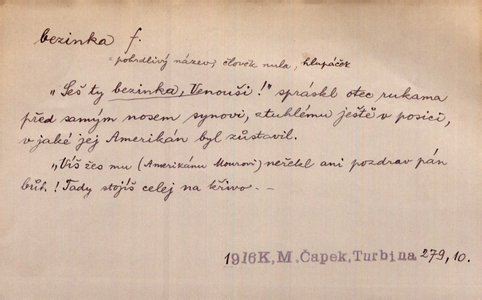 bezinka f.
= pohrdlivý název, člověk nula, hlupáček
"Seš ty bezinka, Venouši!" spráskl otec rukama
před samým nosem synovi, ztuhlému ještě v posici,
v jaké jej Amerikán byl zůstavil.
"Víš žes mu (Amerikánu Mourovi) neřekl ani pozdrav pán
bůh! Tady stojíš celej na křivo. —
1916K, M. Čapek, Turbina 279, 10.